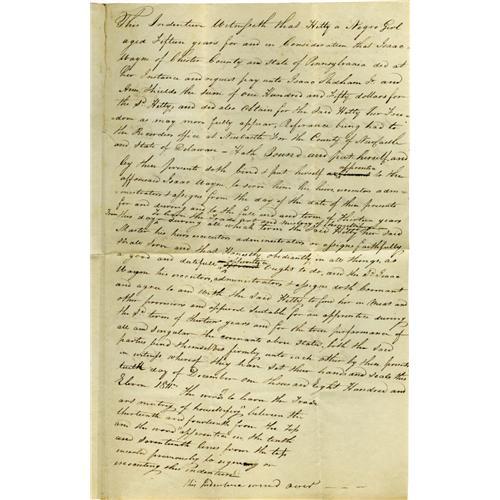 This Indenture Witnesseth that Hetty a Negro Girl
aged Fifteen years for and in Consideration that Isaac
Wayne of Chester County and State of Pennsylvania did at
her Instance and request pay unto Isaac Jr. and
Ann Shields the Sum of One Hundred and Fifty dollars for
the Sd. Hetty, and did also Obtain for the Said Hetty her Free-
dom as may more fully appear, Reference being had to
the Recorders office at Newcastle For the County of Newcastle
and State of Delaware - Hath Bound and put herself, and
by these presents doth bind & put herself apprentice to the
afforesaid Isaac Wayne to serve him his heirs executors admi-
nistrators & assigns from the day of the date of these presents
for and during and to the full end and term of thirteen years
from this day to learn the trade art and mistery of housekeeping
during all which term the said Hetty her Said
Master his heirs executors administrators or assigns faithfully
shall serve and that obediantly in all things, as
a good and dutifull apprentice ought to do, and the Sd. Isaac
Wayne his executors, administrators & assigns doth Covenant
and agree to and with the Said Hetty, to find her in Meat and
other provisions and apparel Suitable for an apprentice during
the Sd. term of thirteen years and for the true performance of
all and singular the covenants above stated, both the Said
parties bind themselves firmly unto each other by these presents
in witness whereof they have set their hands and seals this
day of December one thousand Eight Hundred and
Eleven 1811
The words to learn the Trade
and mistery of housekeeping between the
thirteenth and fourteenth from the top
and the word apprentice in the tenth
and seventeenth lines from the top
inserted previously to signing or
executing this indenture
this Indenture over